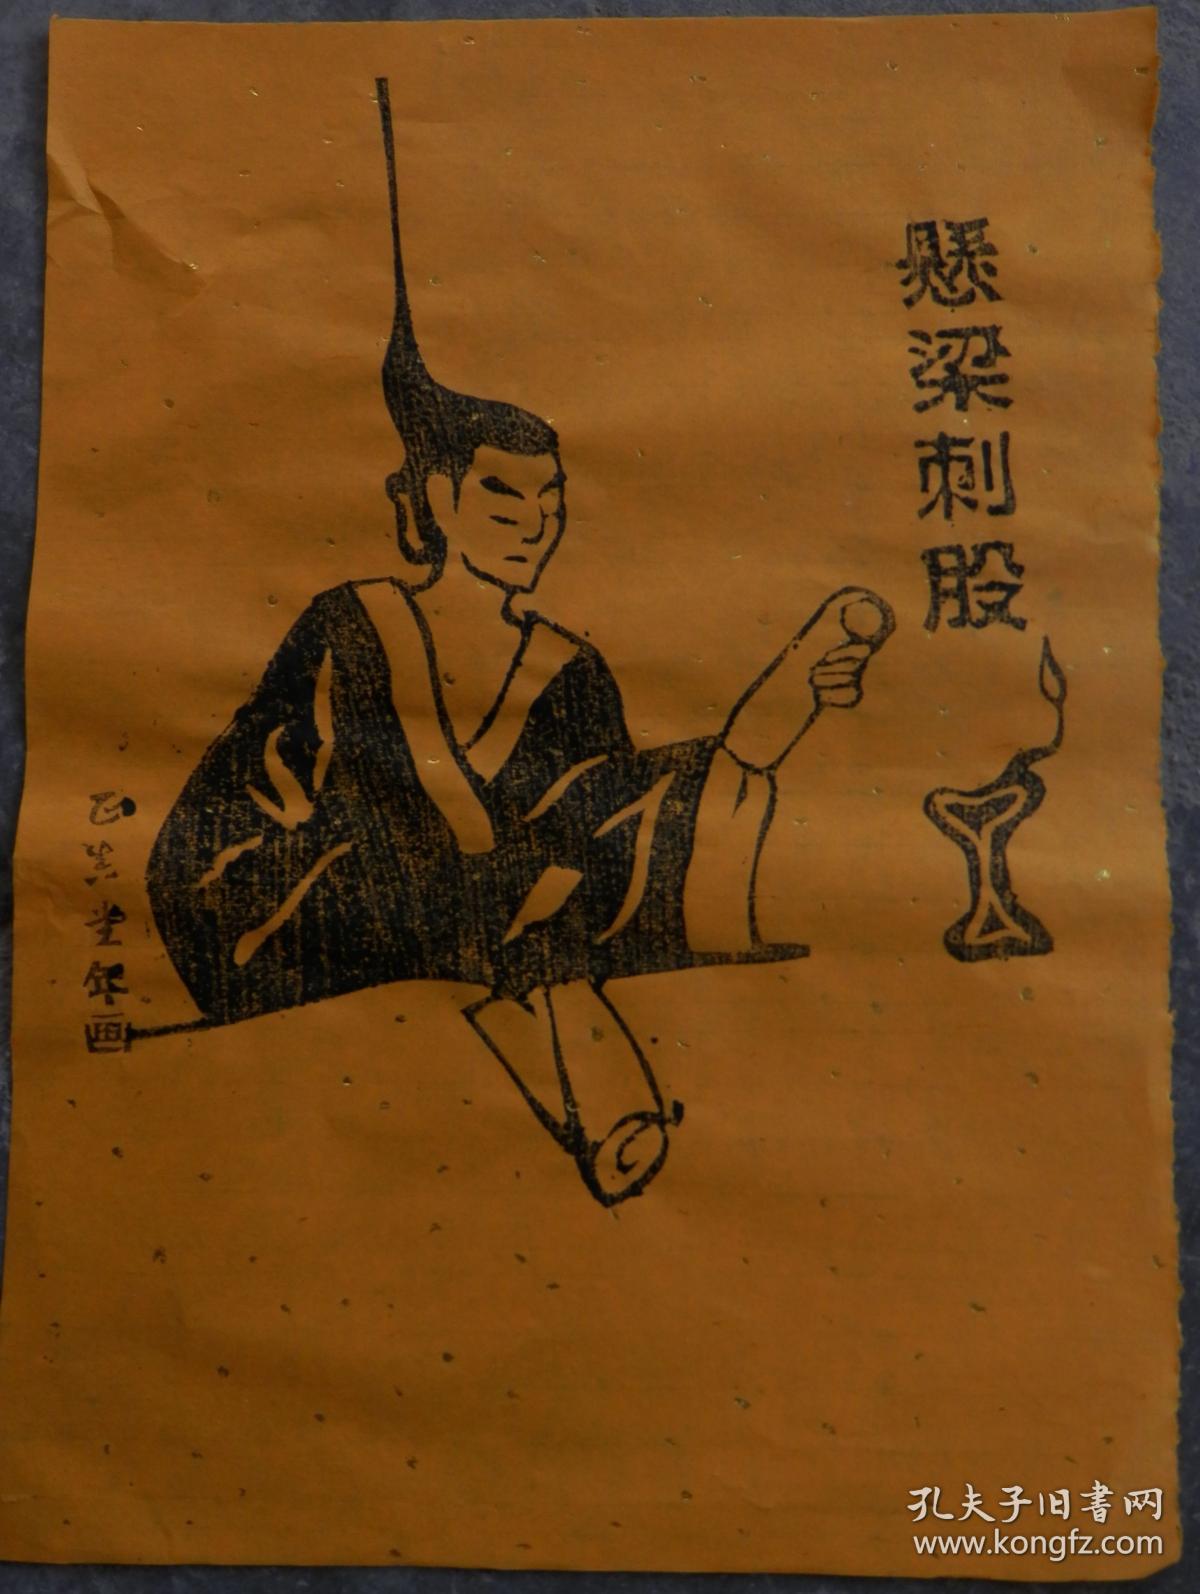 懸梁刺股
正兴堂年画
孔夫子旧書网
www.kongfz.com